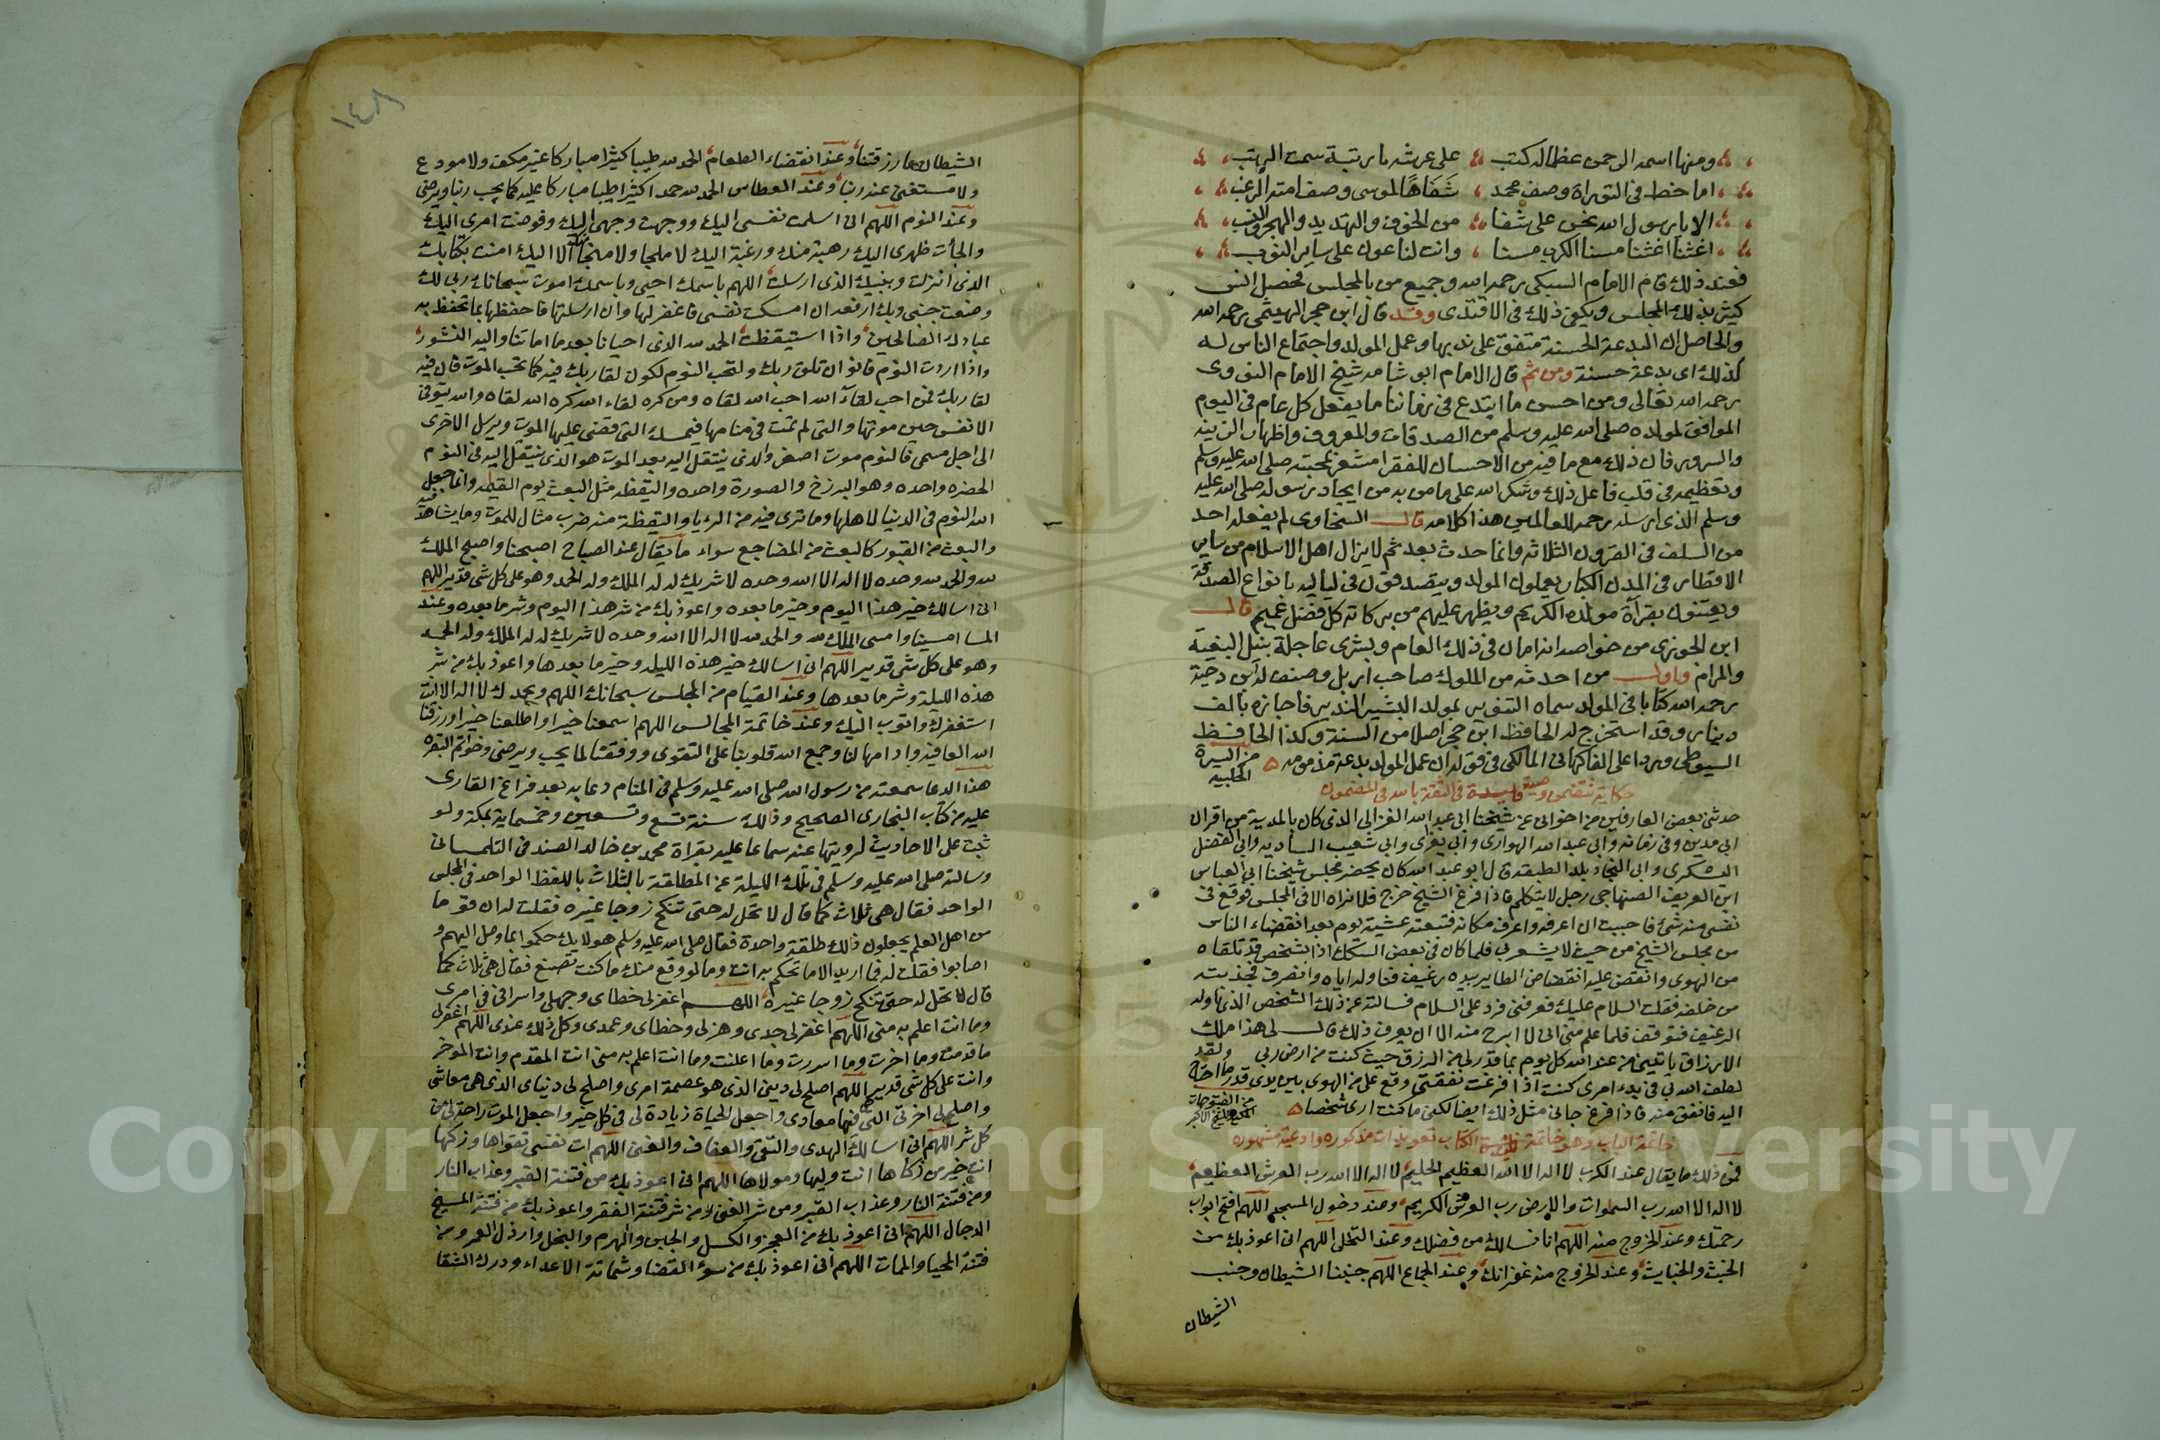 ومنها اسمه الرحمن عظما له كتب على عرشه بارتبة سمت الرتب
اما خط في التوراة وصف محمد شفاها لموسى وصف امته الرغب
الا يا رسول الله نحن على شفا من الخوف والتهديد والهجر
اغثنا اغثنا مسنا الكرب مسنا وانت لنا عون على ساير النوب
فعند ذلك قام الامام السبكي رحمه الله وجميع من بالمجلس فحصل انس
كثير بذلك المجلس ويكفي ذلك في الاقتدى وقد قال ابن حجر الهيثمي رحمه الله
والحاصل ان البدعة الحسنة متفق على ندبها وعمل المولد واجتماع الناس له
كذلك اي بدعة حسنة ومن ثم قال الامام ابو شامه شيخ الامام النووي
رحمه الله تعالى ومن احسن ما ابتدع في زماننا ما يفعل كل عام في اليوم
الموافق لمولده صلى الله عليه وسلم من الصدقات والمعروف واظهار الزينه
والسرور فان ذلك مع ما فيه من الاحسان للفقرا مشعر بمحبته صلى الله عليه وسلم
وتعظيمه في قلب فاعل ذلك وشكر الله على ما من به من ايجاد رسوله صلى الله عليه
وسلم الذي ارسله رحمة للعالمين هذا كلامه قال السخاوي لم يفعله احد
من السلف في القرون الثلاثه وانما حدث بعد ثم لا يزال اهل الاسلام من ساير
الاقطار في المدن الكبار يعملون المولد ويتصدقون في لياليه بانواع الصدقة
ويعتنون بقرآة مولده الكريم ويظهر عليهم من بركاته كل فضل عميم قال
ابن الجوزي من خواصه انه امان في ذلك العام وبشرى عاجلة بنيل البغية
والمرام واول من احدثه من الملوك صاحب اربل وصنف له ابن دحية
رحمه الله كتابا في المولد سماه التنوير بمولد البشير النذير فاجازه بالف
دينار وقد استخرج له الحافظ ابن حجر اصلا من السنة وكذا الحافظ
السيوطي وردا على الفاكهاني المالكي في قوله ان عمل المولد بدعة مذمومه ه من السيرة الحلبيه
حكاية تتضمن وصية في الثقة بالله في المضمون
حدثني بعض العارفين من اخواني عن شيخنا ابي عبد الله الغزالي الذي كان بالمدينة من اقران
ابي مدين وفي زمانه وابي عبد الله الهواري وابي يعزى وابي شعيب السادنه وابي الفضل
اليشكري وابي النجا وتلك الطبقه قال ابو عبد الله كان يحضر مجلس شيخنا ابي العباس
ابن العريف الصنهاجي رجل لا يتكلم فاذا فرغ الشيخ خرج فلا نراه الا في المجلس فوقع في
نفسي منه شئ فاحببت ان اعرفه واعرف مكانه فتبعته عشية يوم بعد انقضاء الناس
من مجلس الشيخ من حيث لا يشعر بي فلما كان في بعض السكك اذا بشخص قد تلقاه
من الهوى وانقض عليه انقضاض الطاير بيده رغيف فناوله اياه وانصرف فجذبته
من خلفه فقلت السلام عليك فعرفني فرد علي السلام فسالته عن ذلك الشخص الذي ناوله
الرغيف فتوقف فلما علم مني اني لا ابرح منه الا ان يعرف ذلك قال لي هذا ملك
الارزاق ياتيني من عند الله كل يوم بما قدر لي من الرزق حيث كنت من ارض ربي ولقد
لطف الله بي في بدء امري كنت اذا فرغت نفقتي وقع علي من الهوى بين يدي قدر ما احتاج
اليه فانفق منه فاذا فرغ جاني مثل ذلك ايضا لكني ما كنت ارى شخصا ه من الفتوحات
خاتمة الباب وهو خاتمة الكتاب تعويذات مذكوره وادعية مشهوره
فمن ذلك ما يقال عند الكرب لا اله الا الله العظيم الحليم لا اله الا الله رب العرش العظيم
لا اله الا الله رب السموات والارض رب العرش الكريم وعند دخول المسجد اللهم افتح ابواب
رحمتك وعند الخروج منه اللهم انا نسالك من فضلك وعند التخلي اللهم اني اعوذ بك من
الخبث والخبايث وعند الخروج منه غفرانك وعند الجماع اللهم جنبنا الشيطان وجنب
الشيطان
١٤٨
الشيطان ما رزقتنا وعند انقضاء الطعام الحمد لله طيبا كثيرا مباركا غير مكفي ولا مودع
ولا مستغنى عنه ربنا وعند العطاس الحمد لله حمدا كثيرا طيبا مباركا عليه كما يحب ربنا ويرضى
وعند النوم اللهم اني اسلمت نفسي اليك ووجهت وجهي اليك وفوضت امري اليك
والجأت ظهري اليك رهبة منك ورغبة اليك لا ملجا ولا منجا منك الا اليك امنت بكتابك
الذي انزلت وبنبيك الذي ارسلت اللهم باسمك احيى وباسمك اموت سبحانك ربي لك
وضعت جنبي وبك ارفعه ان امسكت نفسي فاغفر لها وان ارسلتها فاحفظها بما تحفظ به
عبادك الصالحين واذا استيقظت الحمد لله الذي احيانا بعد ما اماتنا واليه النشور
واذا اردت النوم فانو ان تلقى ربك ولتحب النوم لكون لقا ربك فيه كما تحب الموت فان فيه
لقا ربك فمن احب لقآء الله احب الله لقاه ومن كره لقاء الله كره الله لقاه والله يتوفى
الانفس حين موتها والتي لم تمت في منامها فيمسك التي قضى عليها الموت ويرسل الاخرى
الى اجل مسمى فالنوم موت اصغر والذي ينتقل اليه بعد الموت هو الذي ينتقل اليه في النوم
الحضره واحده وهو البرزخ والصورة واحده واليقظه مثل البعث يوم القيمه وانما جعل
الله النوم في الدنيا لاهلها وما نرى فيه من الرؤيا واليقظة منه ضرب مثال للموت وما يشاهد فيه
والبعث من القبور كالبعث من المضاجع سواء ما يقال عند الصباح اصبحنا واصبح الملك
لله والحمد لله وحده لا اله الا الله وحده لا شريك له له الملك وله الحمد وهو على كل شي قدير اللهم
اني اسالك خير هذا اليوم وخير ما بعده واعوذ بك من شر هذا اليوم وشر ما بعده وعند
المسا امسينا وامسى الملك لله والحمد لله لا اله الا الله وحده لا شريك له له الملك وله الحمد
وهو على كل شي قدير اللهم اني اسالك خير هذه الليله وخير ما بعدها واعوذ بك من شر
هذه الليلة وشر ما بعدها وعند القيام من المجلس سبحانك اللهم وبحمدك لا اله الا انت
استغفرك واتوب اليك وعند خاتمة المجالس اللهم اسمعنا خيرا واطلعنا خيرا ورزقنا
الله العافيه وادامها لنا وجمع الله قلوبنا على التقوى ووفقنا لما يحب ويرضى وخواتم البقره
هذا الدعا سمعته من رسول الله صلى الله عليه وسلم في المنام دعا به بعد فراغ القارى
عليه من كتاب البخاري الصحيح وذلك سنة تسع وتسعين وخمسماية بمكة ولو
ثبت على الاحاديث لرويتها عنه سماعا عليه بقراة محمد بن خالد الصدفي التلمساني
وسالته صلى الله عليه وسلم في تلك الليلة عن المطلقة بالثلاث باللفظ الواحد في المجلس
الواحد فقال هي ثلاث كما قال لا تحل له حتى تنكح زوجا غيره فقلت له ان قوما
من اهل العلم يجعلون ذلك طلقة واحدة فقال صلى الله عليه وسلم هولايك حكموا بما وصل اليهم و
اصابوا فقلت له فما اريد الا ما تحكم به انت وما لو وقع منك ما كنت تصنع فقال هي ثلاث كما
قال لا تحل له حتى تنكح زوجا غيره اللهم اغفر لي خطاي وجهلي واسرافي في امري
وما انت اعلم به مني اللهم اغفر لي جدي وهزلي وخطاي وعمدي وكل ذلك عندي اللهم اغفر لي
ما قدمت وما اخرت وما اسررت وما اعلنت وما انت اعلم به مني انت المقدم وانت الموخر
وانت على كل شي قدير اللهم اصلح لي ديني الذي هو عصمة امري واصلح لي دنياي الذي هي معاشي
واصلح لي اخرتي التي فيها معادي واجعل الحياة زيادة لي في كل خير واجعل الموت راحة لي من
كل شر اللهم اني اسالك الهدى والتقى والعفاف والغنى اللهم ات نفسي تقواها وزكها
انت خير من زكاها انت وليها ومولاها اللهم اني اعوذ بك من فتنة القبر وعذاب النار
ومن فتنة النار وعذاب القبر ومن شر الغنى ومن شر فتنة الفقر واعوذ بك من فتنة المسيح
الدجال اللهم اني اعوذ بك من العجز والكسل والجبن والهرم والبخل وارذل العمر ومن
فتنة المحيا والممات اللهم اني اعوذ بك من سوء القضا وشماتة الاعداء ودرك الشقا
Copyright © King Saud University